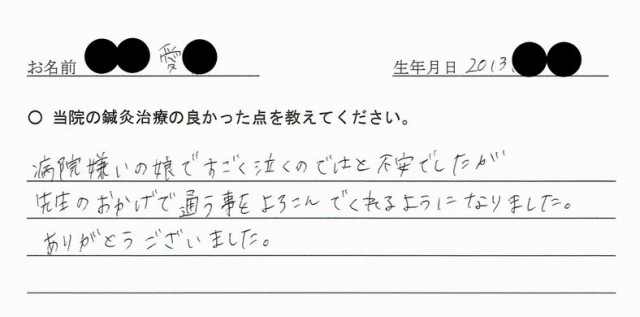 お名前 愛
生年月日 2013.
○ 当院の鍼灸治療の良かった点を教えてください。
病院嫌いの娘ですごく泣くのではと不安でしたが
先生のおかげで通う事をよろこんでくれるようになりました。
ありがとうございました。